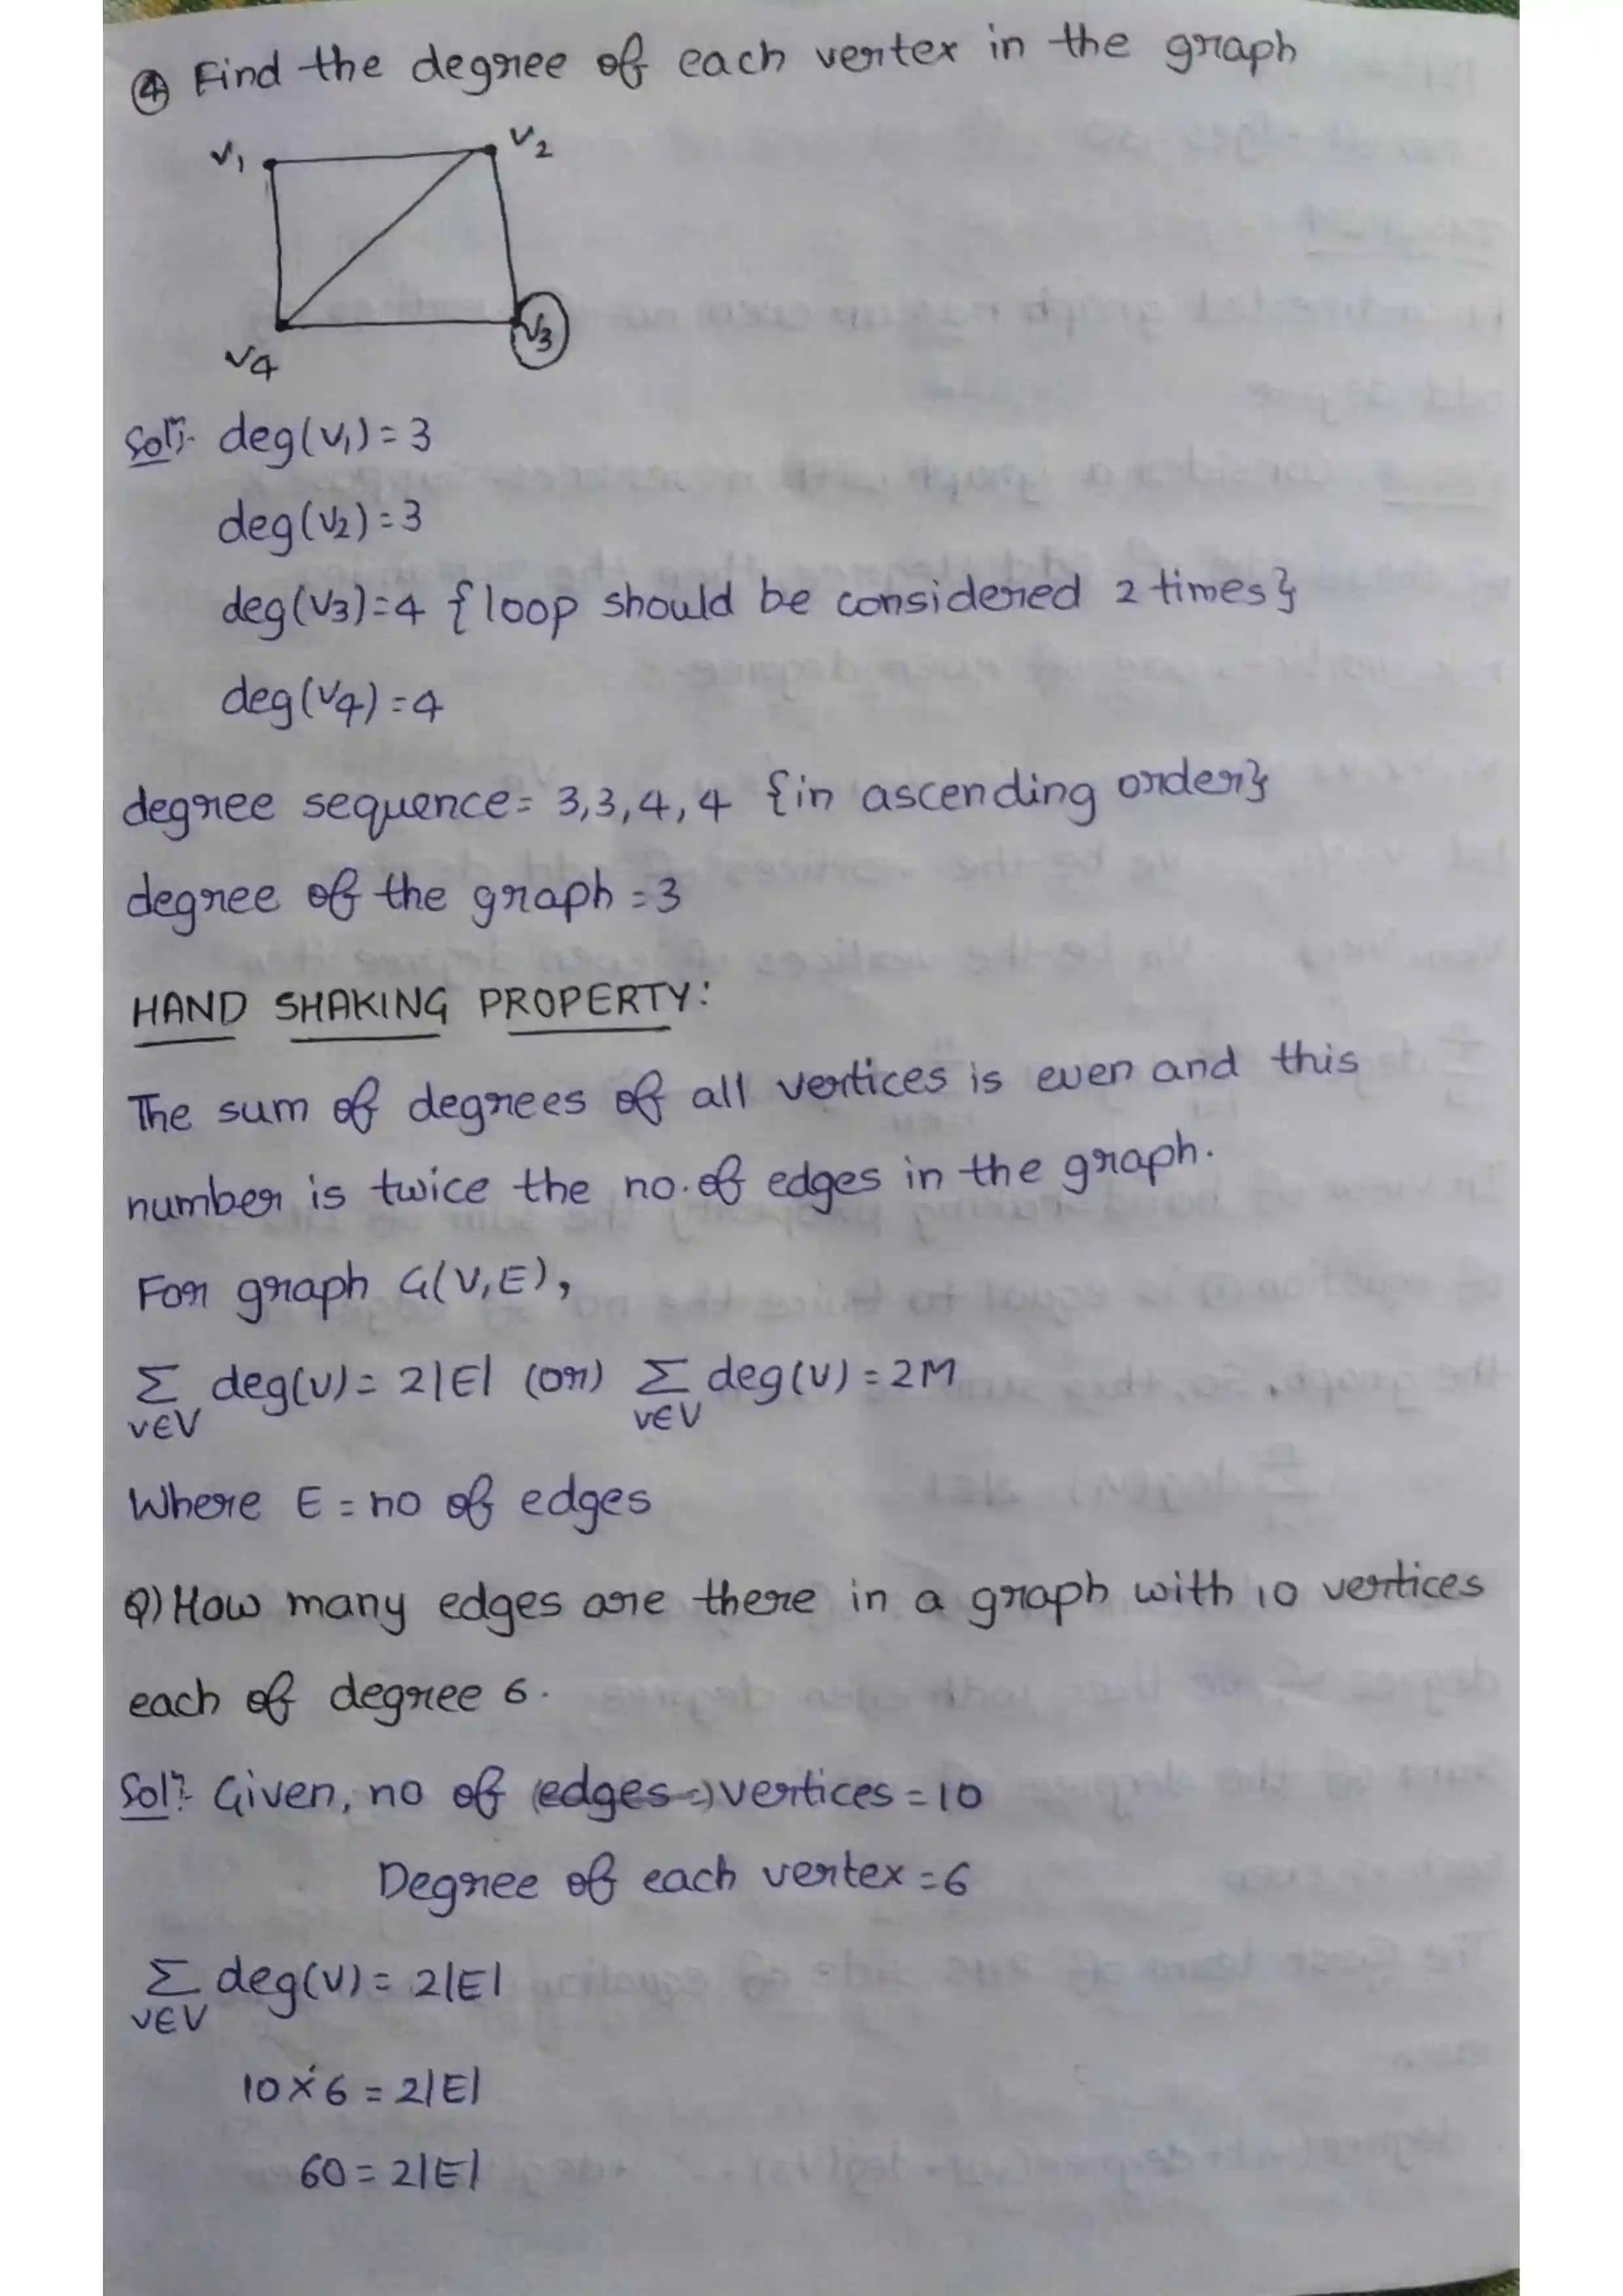 ④ Find the degree of each vertex in the graph
V₁ V₂
V₃
V₄
Solⁿ:- deg(V₁)=3
deg(V₂)=3
deg(V₃)=4 {loop should be considered 2 times}
deg(V₄)=4
degree sequence= 3,3,4,4 {in ascending order}
degree of the graph =3
HAND SHAKING PROPERTY:
The sum of degrees of all vertices is even and this
number is twice the no. of edges in the graph.
For graph G(V,E),
Σ deg(v)= 2|E| (or) Σ deg(v)=2M
v∈V v∈V
Where E = no of edges
Q) How many edges are there in a graph with 10 vertices
each of degree 6.
Solⁿ:- Given, no of (edges=) vertices =10
Degree of each vertex =6
Σ deg(v)= 2|E|
v∈V
10×6 = 2|E|
60 = 2|E|